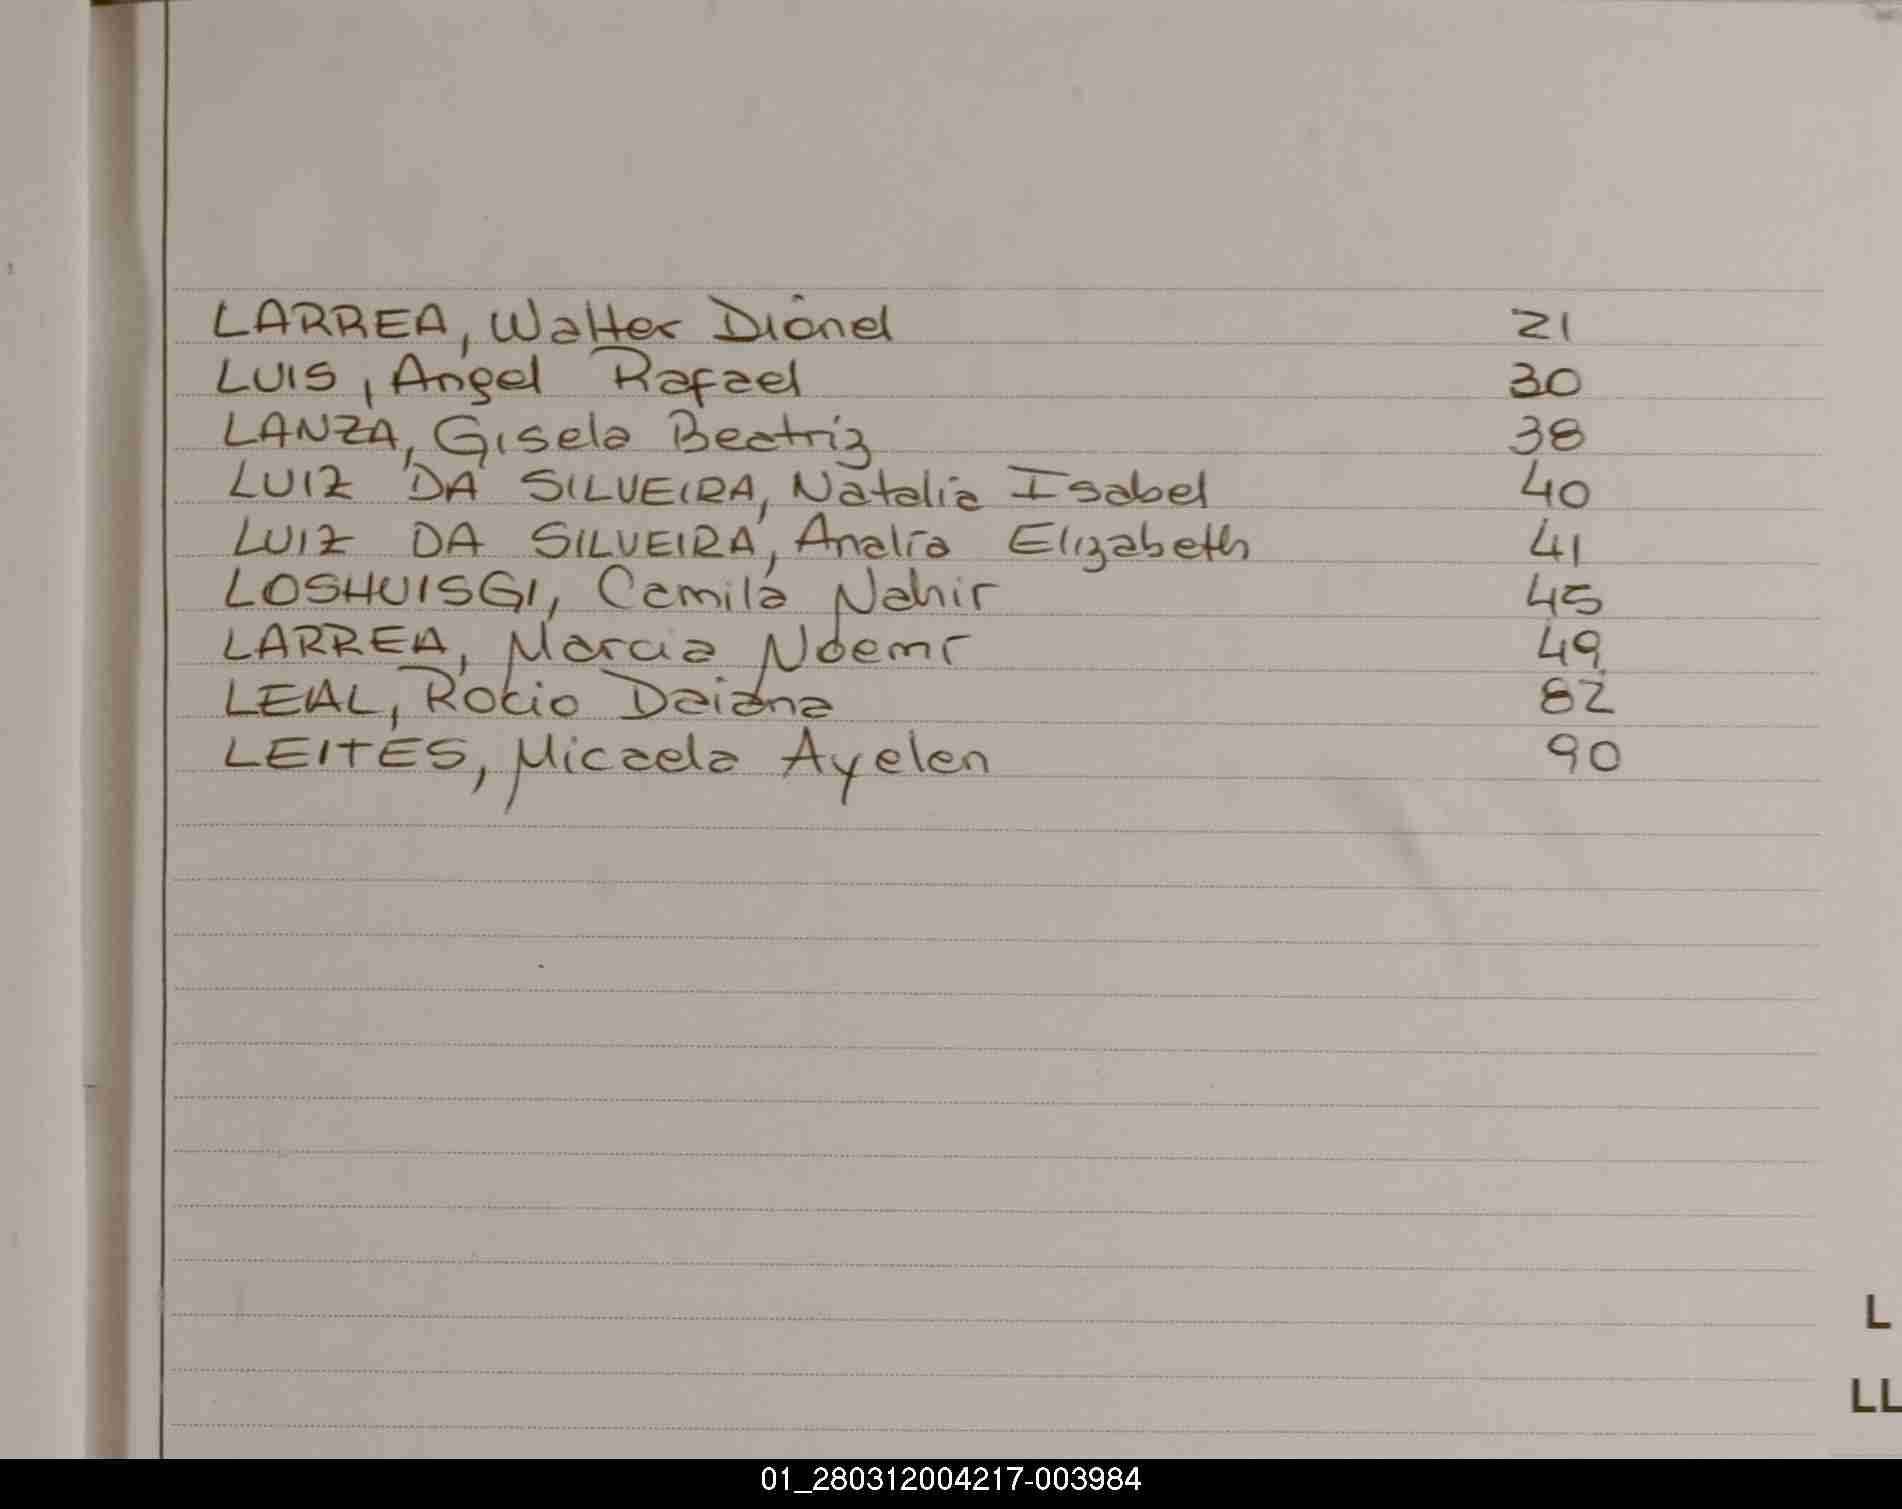 LARREA, Walter Dionel 21
LUIS, Angel Rafael 30
LANZA, Gisela Beatriz 38
LUIZ DA SILVEIRA, Natalia Isabel 40
LUIZ DA SILVEIRA, Analía Elizabeth 41
LOSHUISGI, Camila Nahir 45
LARREA, Marcia Noemí 49
LEAL, Rocio Daiana 82
LEITES, Micaela Ayelen 90
L
LL
01_280312004217-003984